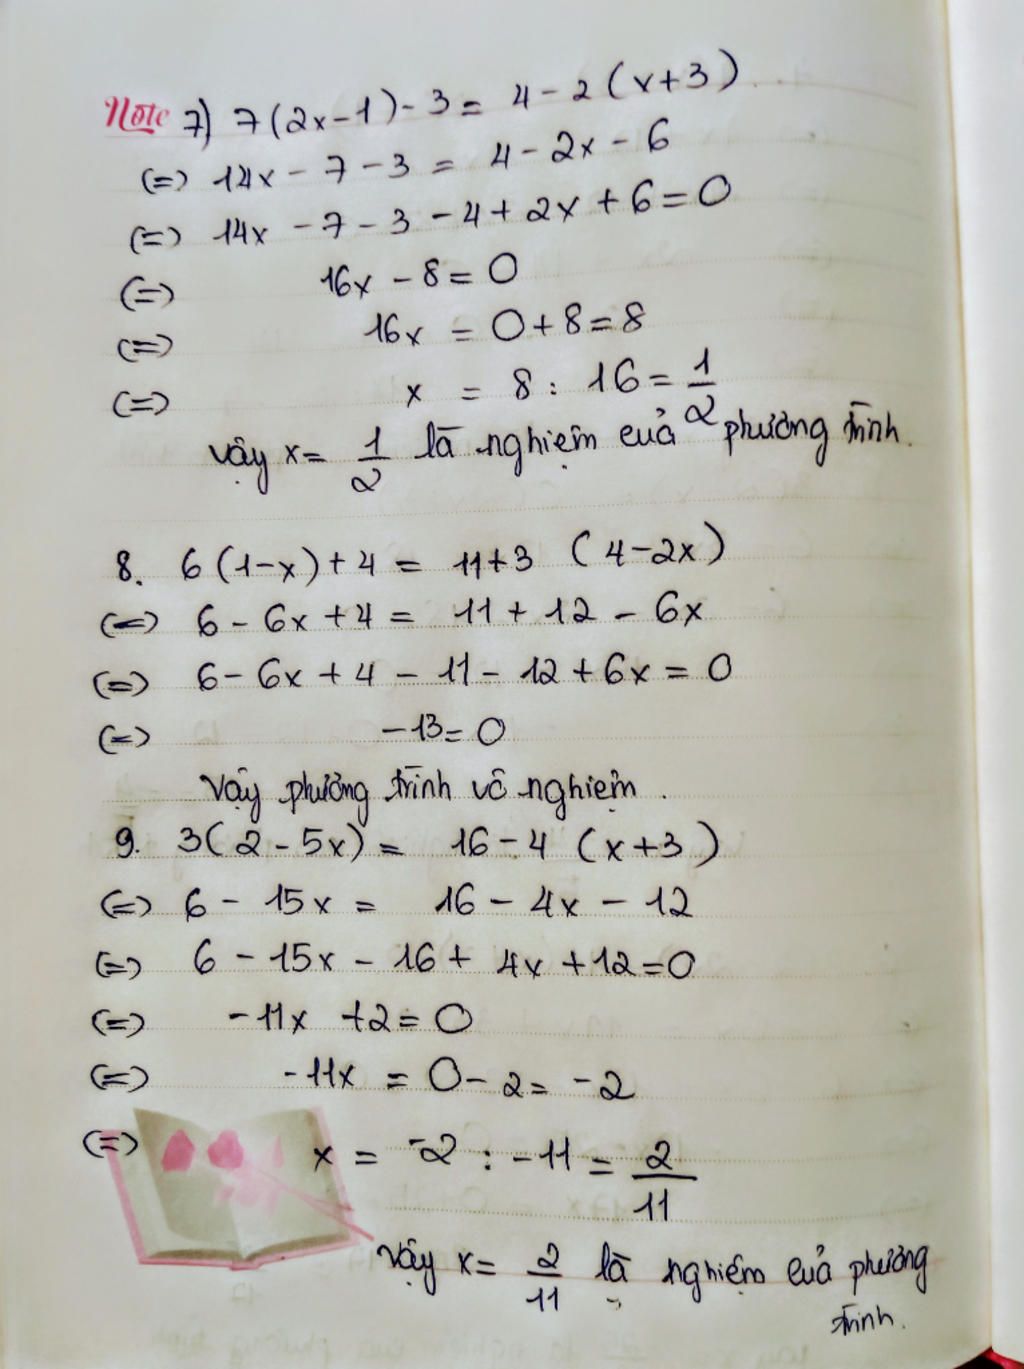 Note 7) 7(2x-1)-3= 4-2(x+3)
(=) 14x - 7 - 3 = 4 - 2x - 6
(=) 14x - 7 - 3 - 4 + 2x + 6 = 0
(=) 16x - 8 = 0
(=) 16x = 0+8=8
(=) x = 8 : 16 = 1/2
Vậy x = 1/2 là nghiệm của phương trình.
8. 6(1-x)+4 = 11+3 (4-2x)
(=) 6 - 6x + 4 = 11 + 12 - 6x
(=) 6 - 6x + 4 - 11 - 12 + 6x = 0
(=) -13 = 0
Vậy phương trình vô nghiệm.
9. 3(2-5x) = 16-4 (x+3)
(=) 6 - 15x = 16 - 4x - 12
(=) 6 - 15x - 16 + 4x + 12 = 0
(=) -11x +2 = 0
(=) -11x = 0-2 = -2
(=) x = -2 : -11 = 2/11
Vậy x = 2/11 là nghiệm của phương
trình.